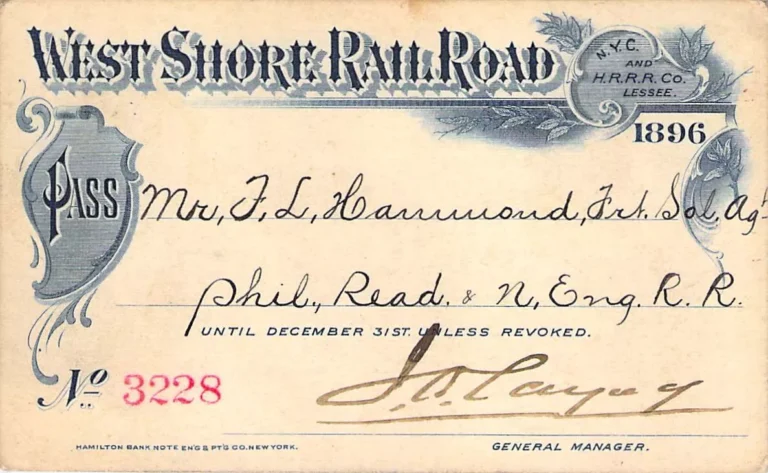 WEST SHORE RAILROAD
N.Y.C.
AND
H.R.R.R. Co.
LESSEE.
1896
PASS
Mr, F, L, Hammond, Frt. Sol, Agt
Phil., Read. & N, Eng. R. R.
UNTIL DECEMBER 31ST. UNLESS REVOKED.
No 3228
HAMILTON BANK NOTE ENG & PT'G CO. NEW YORK.
GENERAL MANAGER.